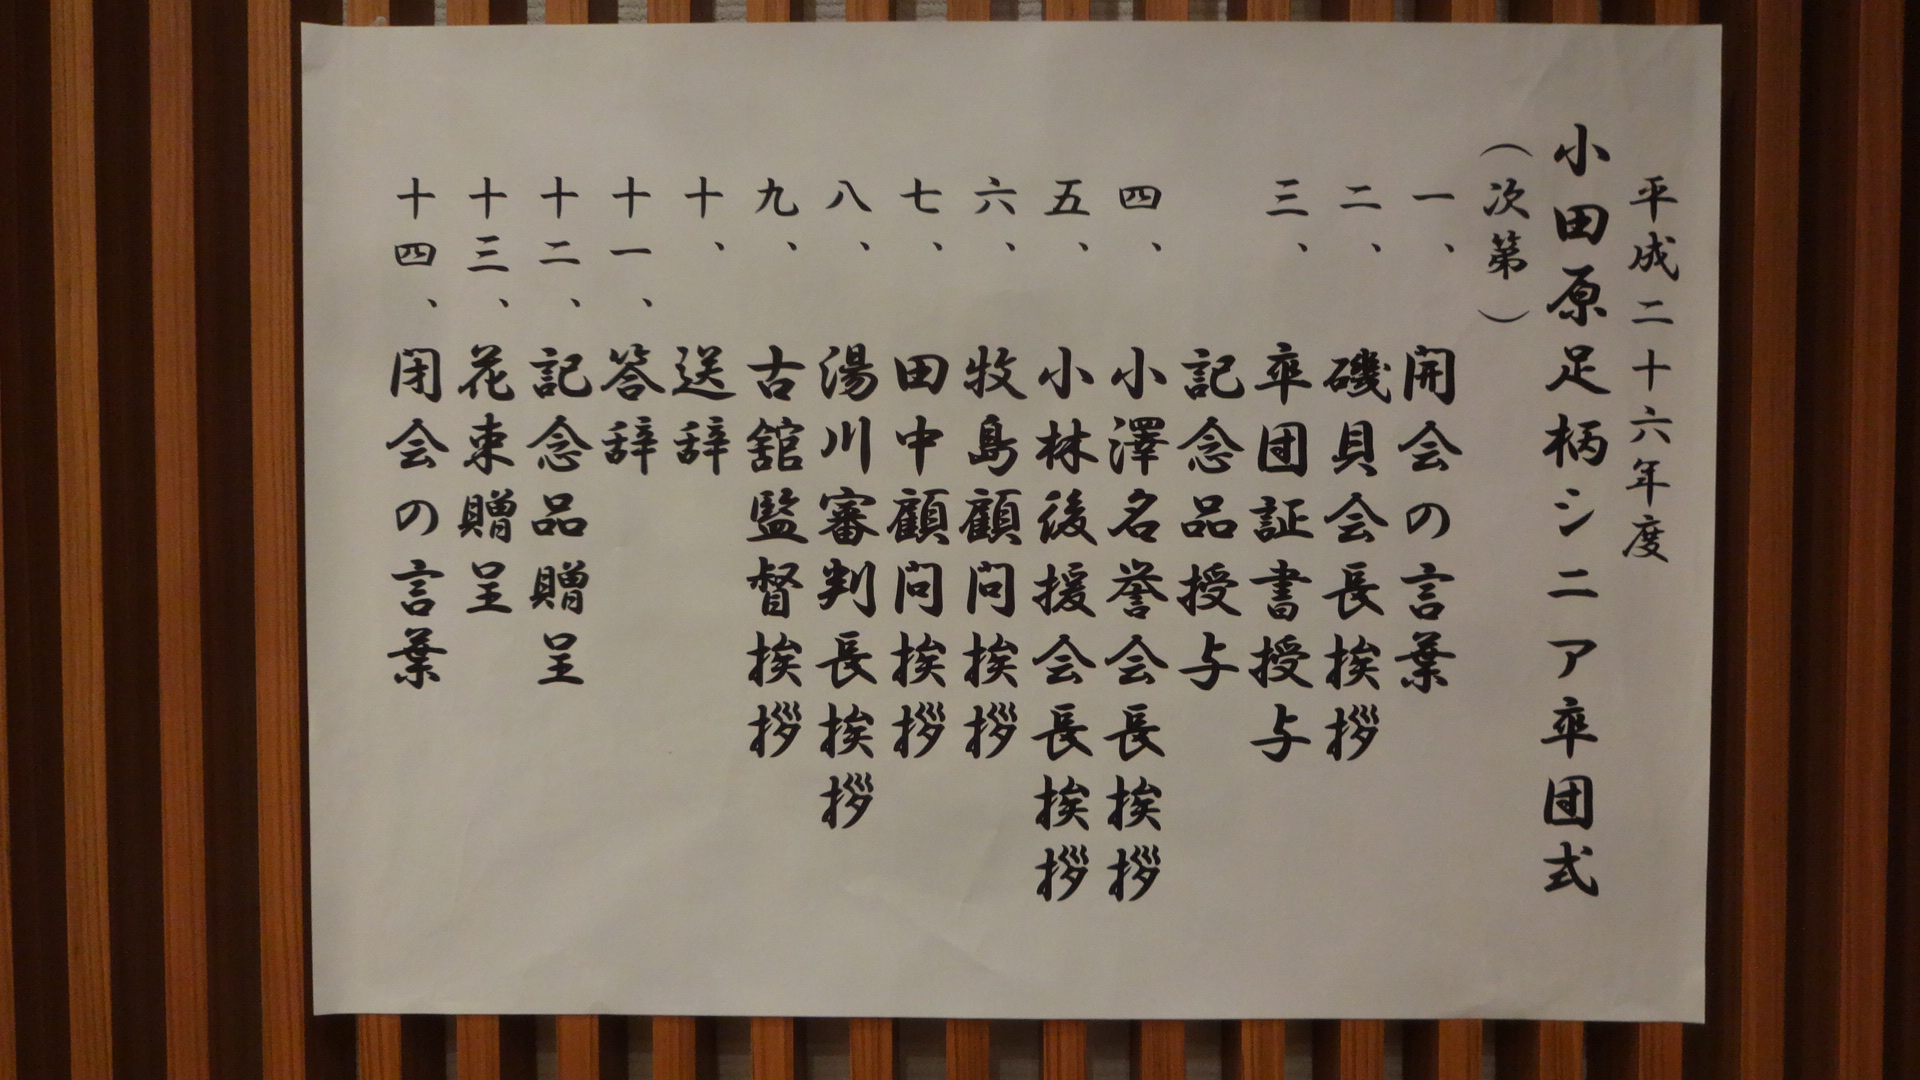 平成二十六年度
小田原足柄シニア卒団式
（次第）
一、開会の言葉
二、磯貝会長挨拶
三、卒団証書授与
記念品授与
四、小澤名誉会長挨拶
五、小林後援会長挨拶
六、牧島顧問挨拶
七、田中顧問挨拶
八、湯川審判長挨拶
九、古舘監督挨拶
十、送辞
十一、答辞
十二、記念品贈呈
十三、花束贈呈
十四、閉会の言葉